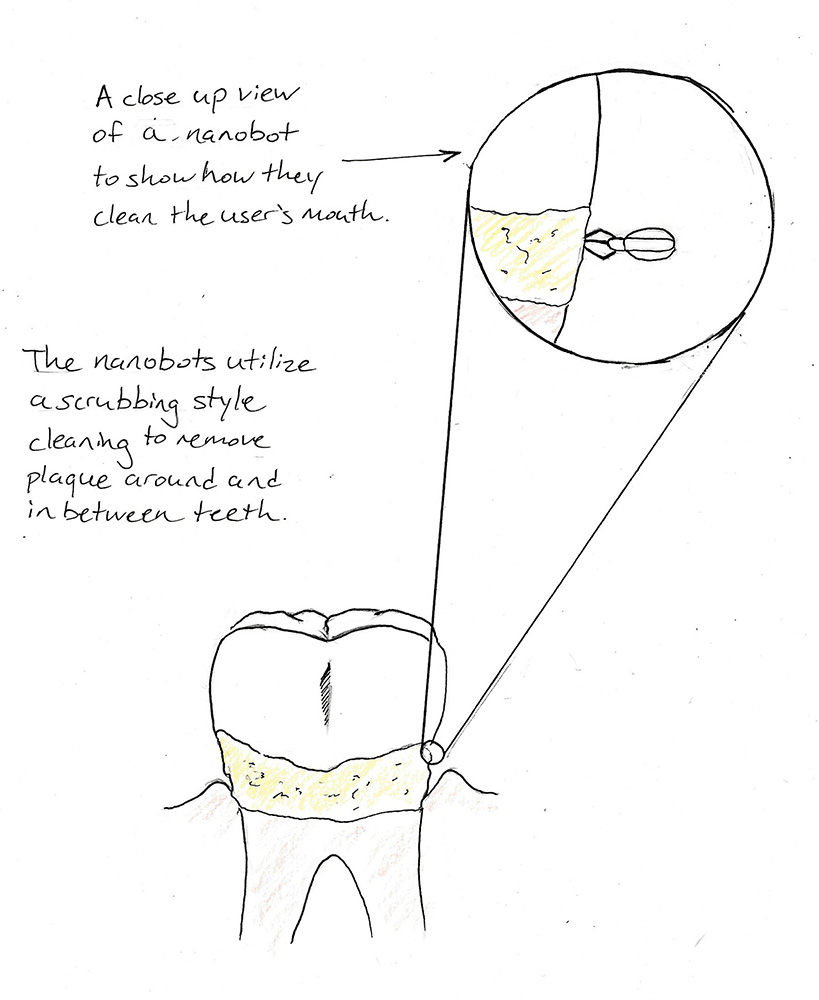 A close up view
of a nanobot
to show how they
clean the user's mouth.
The nanobots utilize
a scrubbing style
cleaning to remove
plaque around and
in between teeth.